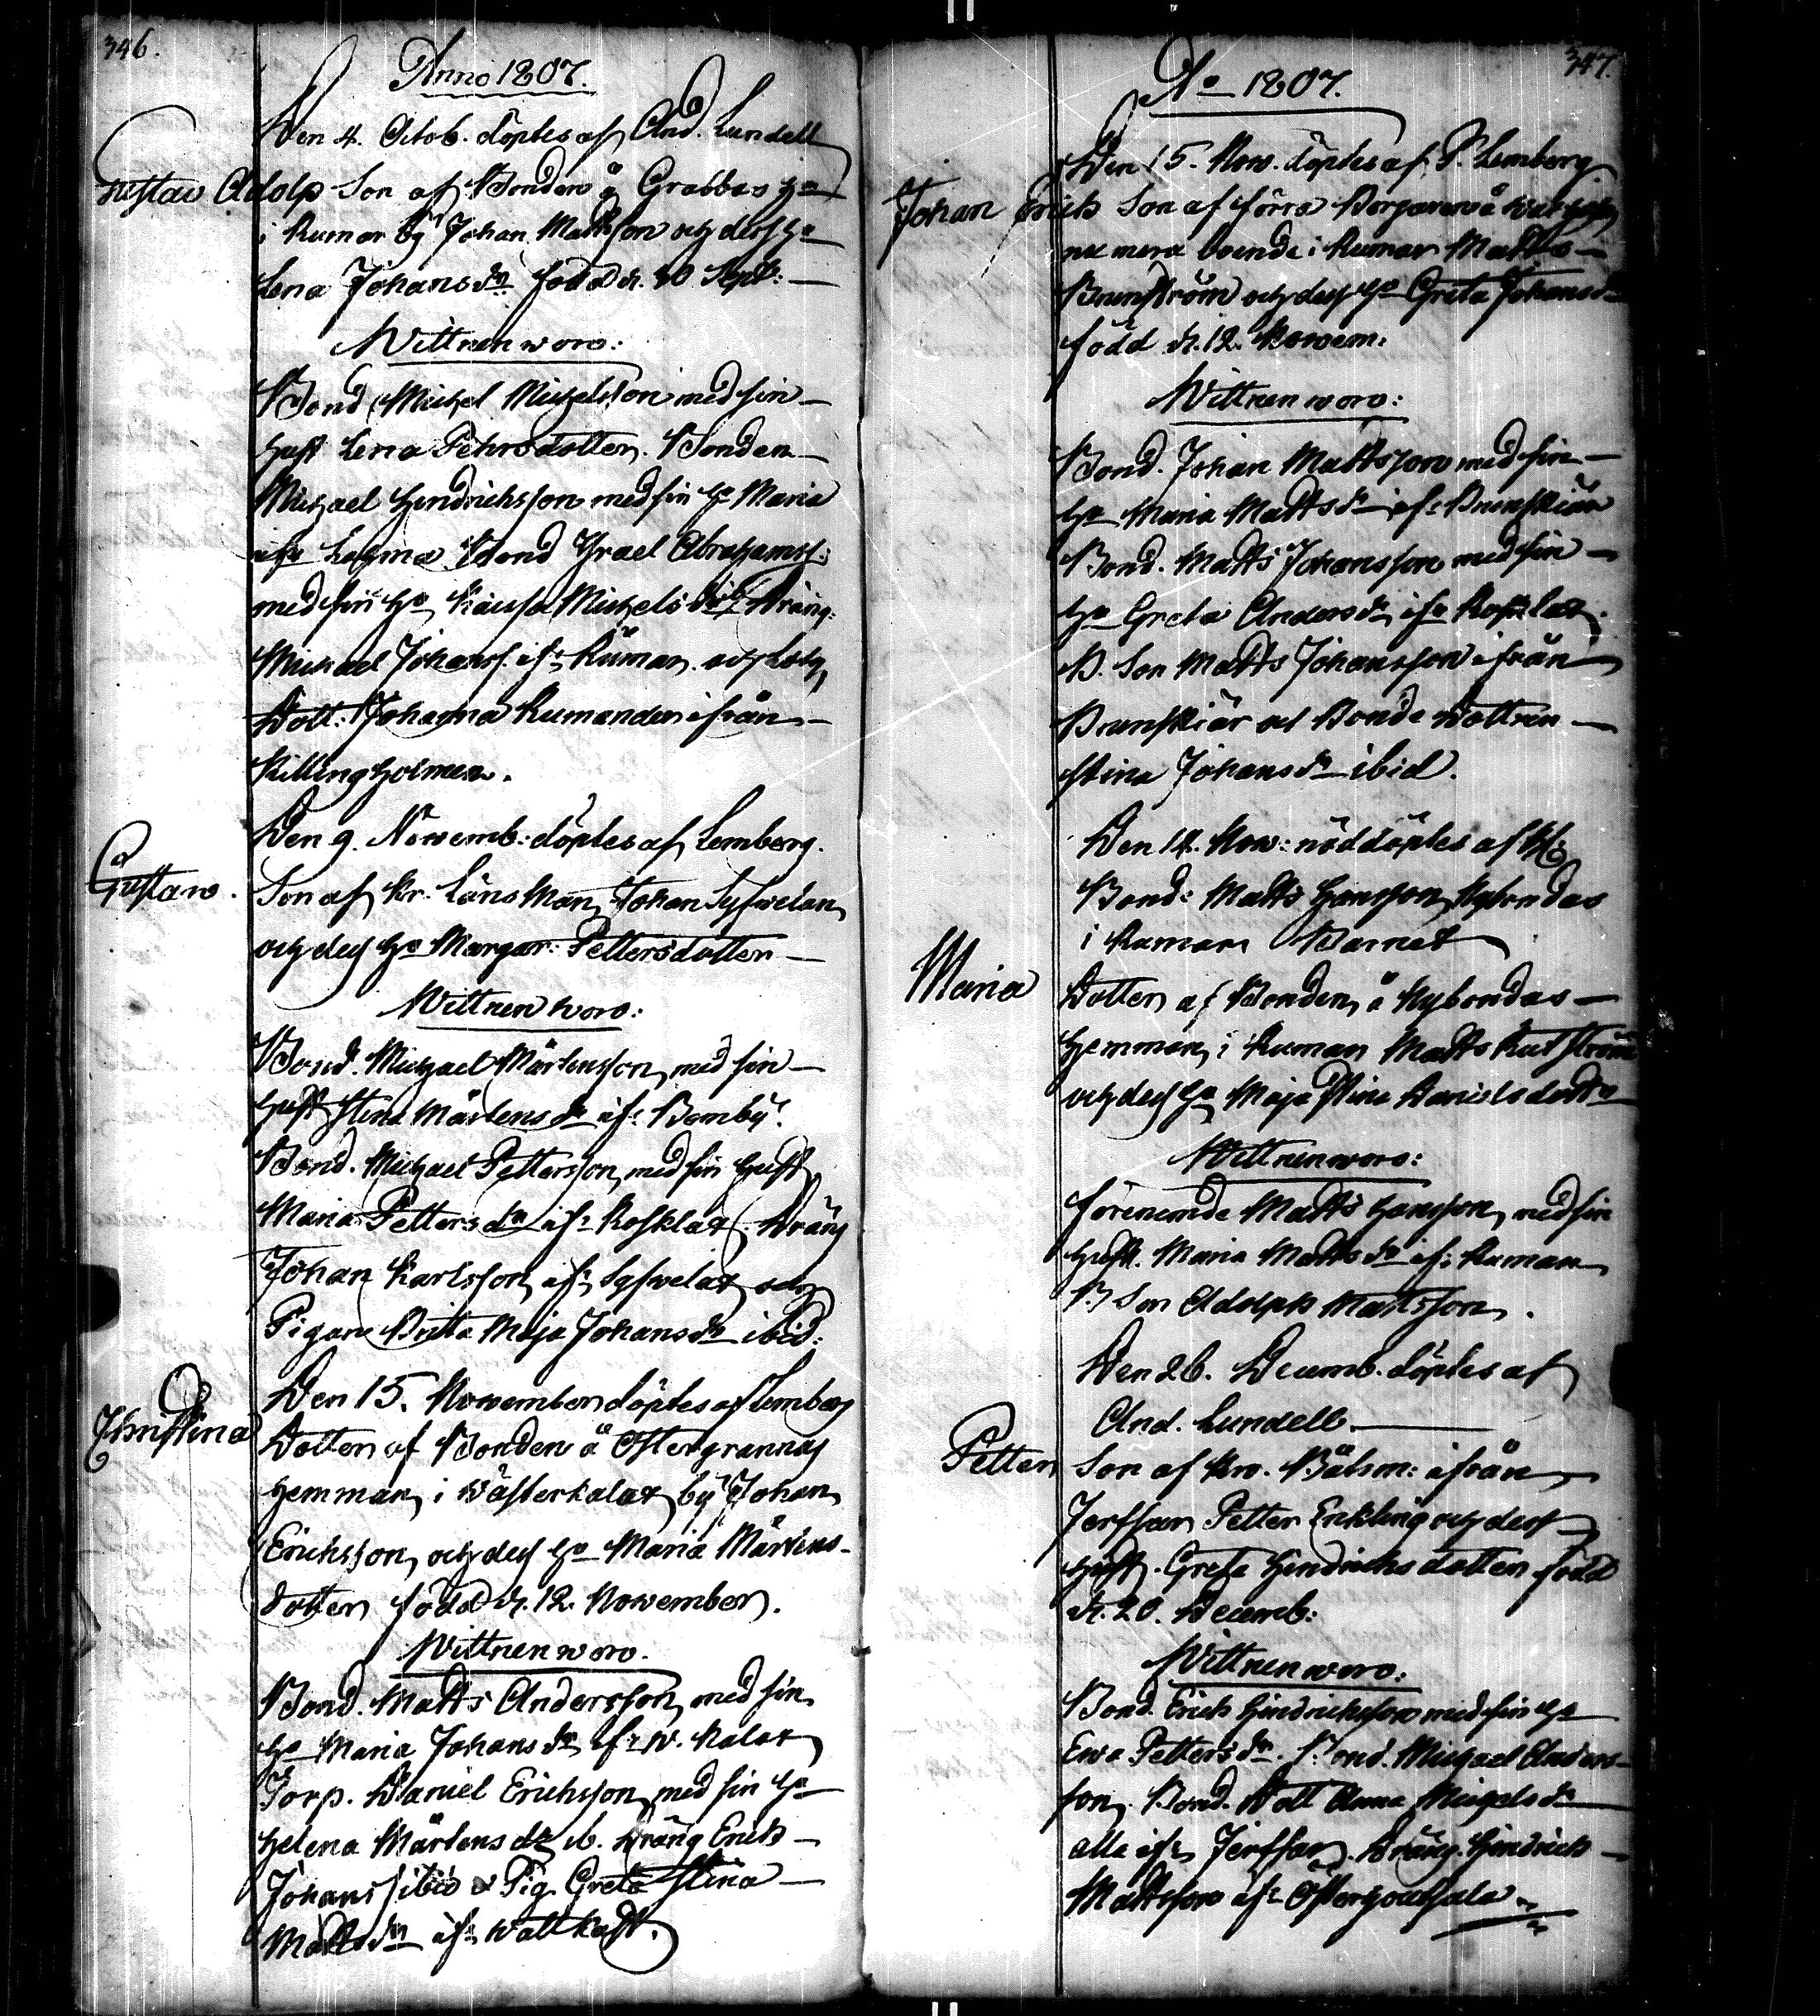 346.
Anno 1807.
Den 4. Octob. döptes af And. Lundell
Gustav Adolp Son af Bonden å Grabbas hn
i Rumar by Johan Mattsson och dess ho
Lena Johans dr. född d. 30 Sept:
Wittnen woro:
Bond Michel Michelsson med sin
hust Lena Pehrsdotter. Bonden
Michael Hendrichsson med sin ho Maria
ifr Lohma Bond Israel Abrahams:
med sin ho Kaisa Michels dr ib. Dräng.
Michael Johans. ifr Rumar och Lots
Dott: Johanna Rumander ifrån
Killingholmen.
Den 9. Novemb: döptes af Lemberg.
Gustaw. Son af Kr. Länsman Johan Sylwelan
och dess ho Margar: Pettersdotter
Wittnen woro:
Bond. Michael Mårtensson med sin
hust Stina Mårtens dr ifr Bomby.
Bond. Michael Pettersson med sin hust
Maria Petters dr ifr Rosklax. Dräng
Johan Karlsson ifr Sylwelax och
Pigan Britta Maja Johans dr ibid:
Den 15. November döptes af Lemberg
Christina Dotter af Bonden å Östergrannas
hemman i Wästerkalax by Johan
Ericksson och dess ho Maria Mårtens-
dotter född d. 12. November.
Wittnen woro.
Bond. Matts Andersson med sin
ho Maria Johans dr ifr W. Kalax
Torp. Daniel Ericksson med sin ho
Helena Mårtens dr ib. Dräng Erick
Johanss ibid & Pig. Greta Stina
Matts dr ifr Wattkast.
347.
Ao 1807.
Den 15. Nov. döptes af P. Lemberg
Johan Erick Son af förra Borgaren å
nu mera boende i Rumar Matts
Brunström och dess ho Greta Johans dr
född d. 12. Novem:
Wittnen woro:
Bond. Johan Mattsson med sin
ho Maria Matts dr ifr Brunskiär
Bond. Matts Johansson med sin
ho Greta Anders dr ifr Rosklax.
B. Son Matts Johansson ifrån
Brunskiär och Bonde Dottren
Stina Johans dr ibid.
Den 14. Nov: nöddöptes af
Bond: Matts Hansson Nybondas
i Rumar Barnet
Maria Dotter af Bonden å Nybondas
hemman i Rumar Matts Rutström
och dess ho Maja Stina Danielsdotter
Wittnen woro:
förenemde Matts Hansson med sin
hust. Maria Matts dr ifr Rumar
B Son Adolph Mattsson.
Den 26. Decemb. döptes af
And. Lundell
Petter Son af Kro. Båtsm: ifrån
Jerssar Petter Enkling och dess
hust. Greta Hindrichsdotter född
d. 20. Decemb:
Wittnen woro:
Bond. Erick Hindricksson med sin ho
Ewa Petters dr. Bond. Michael Anders-
son. Bond. Dott Anna Michels dr
alla ifr Jerssar. Dräng. Hindrick
Mattsson ifr Österhoutsala